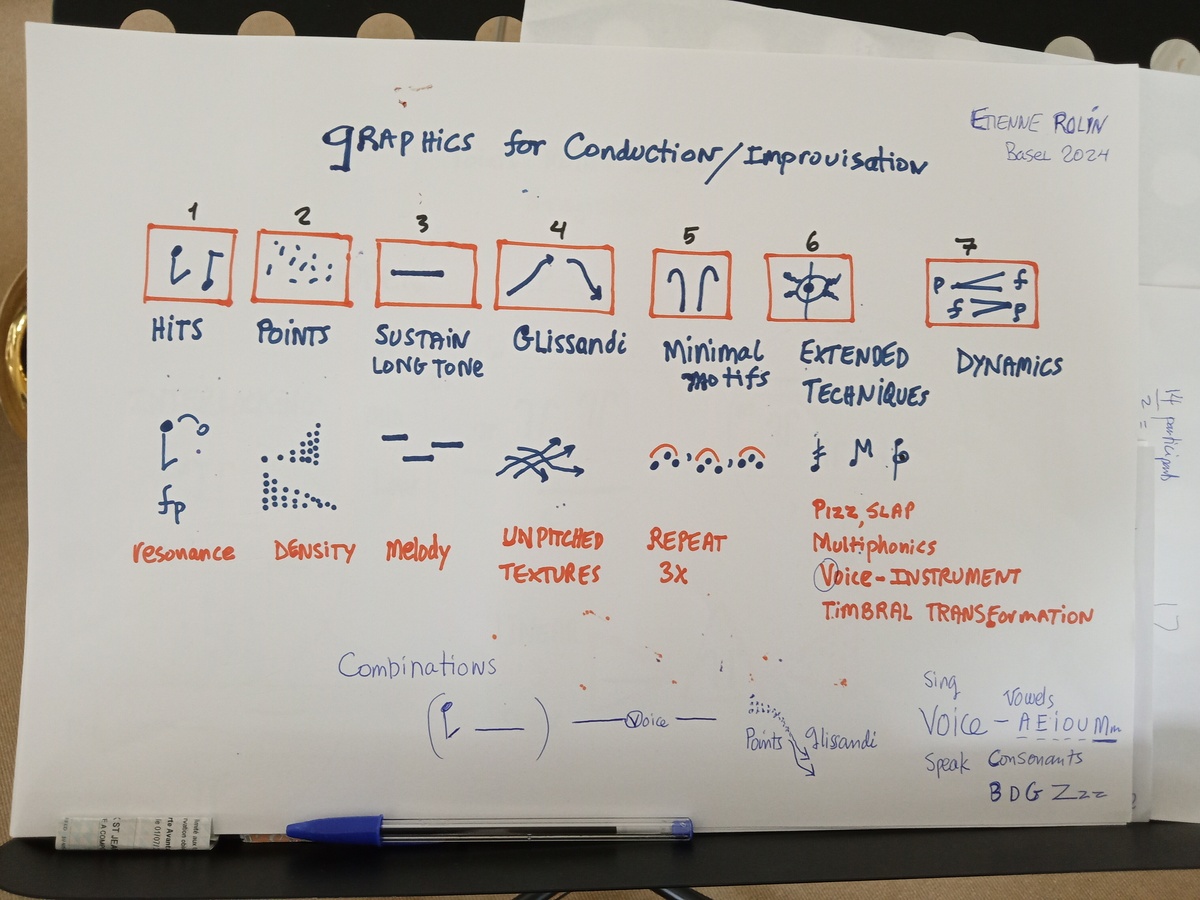 gRAPHICS for CONDUCTION/IMPROVISATION
ETIENNE ROLIN
BASEL 2024
1 2 3 4 5 6 7
p f
f p
HITS
POINTS
SUSTAIN
LONG TONE
GLISSANDI
Minimal
motifs
EXTENDED
TECHNIQUES
DYNAMICS
fp
M
resonance
DENSITY
Melody
UNPITCHED
TEXTURES
REPEAT
3X
Pizz, SLAP
Multiphonics
Voice-INSTRUMENT
TIMBRAL TRANSFORMATION
Combinations
Voice
Points glissandi
Sing
Vowels
VOICE - A E I O U Mm
Speak Consonants
B D G Zzz
14 participants
2 =
17
ST JEA